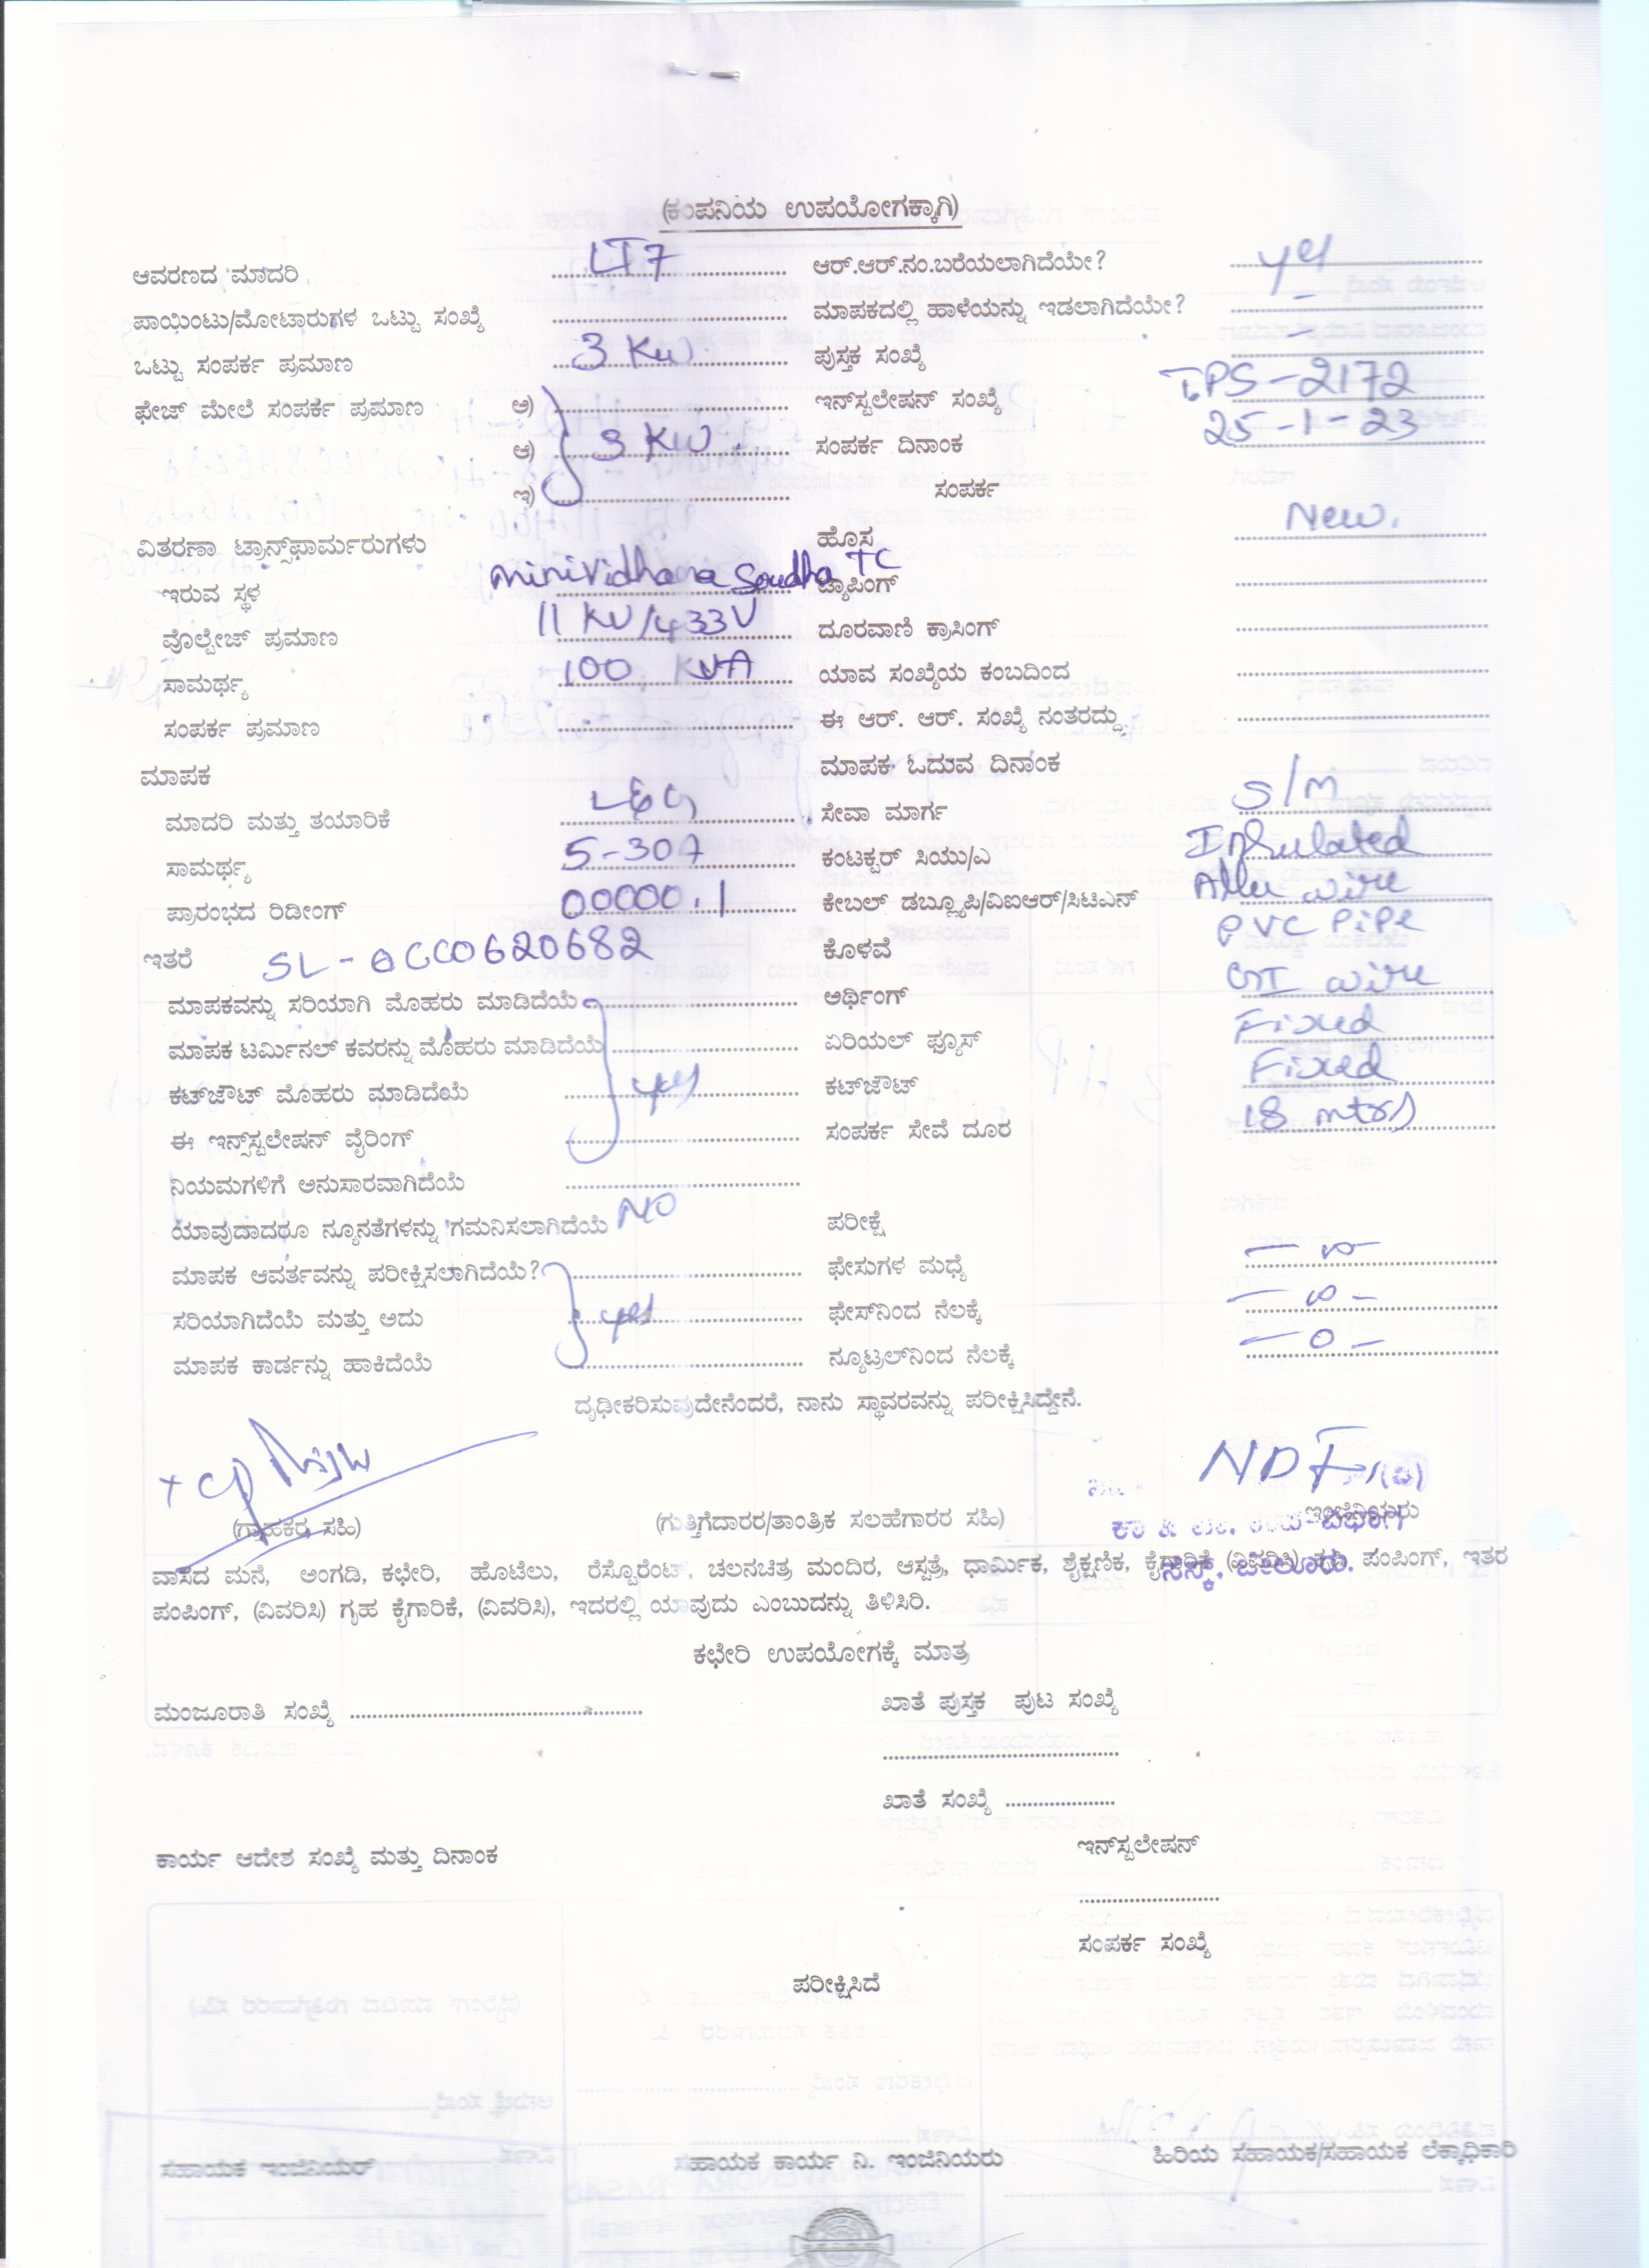 (ಕಂಪನಿಯ ಉಪಯೋಗಕ್ಕಾಗಿ)
ಆವರಣದ ಮಾದರಿ LT7 ಆರ್.ಆರ್.ನಂ.ಬರೆಯಲಾಗಿದೆಯೇ? yes
ಪಾಯಿಂಟು/ಮೋಟಾರುಗಳ ಒಟ್ಟು ಸಂಖ್ಯೆ ಮಾಪಕದಲ್ಲಿ ಹಾಳೆಯನ್ನು ಇಡಲಾಗಿದೆಯೇ? –
ಒಟ್ಟು ಸಂಪರ್ಕ ಪ್ರಮಾಣ 3 KW ಪುಸ್ತಕ ಸಂಖ್ಯೆ –
ಫೇಜ್ ಮೇಲೆ ಸಂಪರ್ಕ ಪ್ರಮಾಣ ಅ) ಇನ್‌ಸ್ಟಲೇಷನ್ ಸಂಖ್ಯೆ TPS-2172
ಆ) 3 KW ಸಂಪರ್ಕ ದಿನಾಂಕ 25-1-23
ಇ) ಸಂಪರ್ಕ
ವಿತರಣಾ ಟ್ರಾನ್ಸ್‌ಫಾರ್ಮರುಗಳು ಹೊಸ New.
ಇರುವ ಸ್ಥಳ minividhana Soudha TC ಟ್ಯಾಪಿಂಗ್
ವೊಲ್ಟೇಜ್ ಪ್ರಮಾಣ 11 KV/433V ದೂರವಾಣಿ ಕ್ರಾಸಿಂಗ್
ಸಾಮರ್ಥ್ಯ 100 KVA ಯಾವ ಸಂಖ್ಯೆಯ ಕಂಬದಿಂದ
ಸಂಪರ್ಕ ಪ್ರಮಾಣ ಈ ಆರ್. ಆರ್. ಸಂಖ್ಯೆ ನಂತರದ್ದು
ಮಾಪಕ ಮಾಪಕ ಓದುವ ದಿನಾಂಕ
ಮಾದರಿ ಮತ್ತು ತಯಾರಿಕೆ L&G ಸೇವಾ ಮಾರ್ಗ S/M
ಸಾಮರ್ಥ್ಯ 5-30A ಕಂಟಕ್ಟರ್ ಸಿಯು/ಎ Insulated
ಪ್ರಾರಂಭದ ರಿಡೀಂಗ್ 00000.1 ಕೇಬಲ್ ಡಬ್ಲ್ಯೂಪಿ/ವಿಐಆರ್/ಸಿಟಿಎನ್ Allu wire
ಇತರೆ SL- 0620682 ಕೊಳವೆ PVC PiPe
ಮಾಪಕವನ್ನು ಸರಿಯಾಗಿ ಮೊಹರು ಮಾಡಿದೆಯೆ ಅರ್ಥಿಂಗ್ GI wire
ಮಾಪಕ ಟರ್ಮಿನಲ್ ಕವರನ್ನು ಮೊಹರು ಮಾಡಿದೆಯೆ ಏರಿಯಲ್ ಫ್ಯೂಸ್ Fixed
ಕಟ್‌ಔಟ್ ಮೊಹರು ಮಾಡಿದೆಯೆ yes ಕಟ್‌ಔಟ್ Fixed
ಈ ಇನ್‌ಸ್ಟಲೇಷನ್ ವೈರಿಂಗ್ ಸಂಪರ್ಕ ಸೇವೆ ದೂರ 18 mtrs
ನಿಯಮಗಳಿಗೆ ಅನುಸಾರವಾಗಿದೆಯೆ
ಯಾವುದಾದರೂ ನ್ಯೂನತೆಗಳನ್ನು ಗಮನಿಸಲಾಗಿದೆಯೆ NO ಪರೀಕ್ಷೆ
ಮಾಪಕ ಆವರ್ತವನ್ನು ಪರೀಕ್ಷಿಸಲಾಗಿದೆಯೆ? ಫೇಸುಗಳ ಮಧ್ಯೆ – ∞ –
ಸರಿಯಾಗಿದೆಯೆ ಮತ್ತು ಅದು yes ಫೇಸ್‌ನಿಂದ ನೆಲಕ್ಕೆ – ∞ –
ಮಾಪಕ ಕಾರ್ಡನ್ನು ಹಾಕಿದೆಯೆ ನ್ಯೂಟ್ರಲ್‌ನಿಂದ ನೆಲಕ್ಕೆ – 0 –
ದೃಢೀಕರಿಸುವುದೇನೆಂದರೆ, ನಾನು ಸ್ಥಾವರವನ್ನು ಪರೀಕ್ಷಿಸಿದ್ದೇನೆ.
(ಗ್ರಾಹಕರ ಸಹಿ) (ಗುತ್ತಿಗೆದಾರರ/ತಾಂತ್ರಿಕ ಸಲಹೆಗಾರರ ಸಹಿ) ಇಂಜಿನಿಯರು
ವಾಸದ ಮನೆ, ಅಂಗಡಿ, ಕಛೇರಿ, ಹೊಟೆಲು, ರೆಸ್ಟೊರೆಂಟ್, ಚಲನಚಿತ್ರ ಮಂದಿರ, ಆಸ್ಪತ್ರೆ, ಧಾರ್ಮಿಕ, ಶೈಕ್ಷಣಿಕ, ಕೈಗಾರಿಕೆ (ವಿವರಿಸಿ) ಪಂಪಿಂಗ್, ಇತರ
ಪಂಪಿಂಗ್, (ವಿವರಿಸಿ) ಗೃಹ ಕೈಗಾರಿಕೆ, (ವಿವರಿಸಿ), ಇದರಲ್ಲಿ ಯಾವುದು ಎಂಬುದನ್ನು ತಿಳಿಸಿರಿ.
ಕಛೇರಿ ಉಪಯೋಗಕ್ಕೆ ಮಾತ್ರ
ಮಂಜೂರಾತಿ ಸಂಖ್ಯೆ ಖಾತೆ ಪುಸ್ತಕ ಪುಟ ಸಂಖ್ಯೆ
ಖಾತೆ ಸಂಖ್ಯೆ
ಕಾರ್ಯ ಆದೇಶ ಸಂಖ್ಯೆ ಮತ್ತು ದಿನಾಂಕ ಇನ್‌ಸ್ಟಲೇಷನ್
ಸಂಪರ್ಕ ಸಂಖ್ಯೆ
ಪರೀಕ್ಷಿಸಿದೆ
ಸಹಾಯಕ ಇಂಜಿನಿಯರ್ ಸಹಾಯಕ ಕಾರ್ಯ ನಿ. ಇಂಜಿನಿಯರು ಹಿರಿಯ ಸಹಾಯಕ/ಸಹಾಯಕ ಲೆಕ್ಕಾಧಿಕಾರಿ